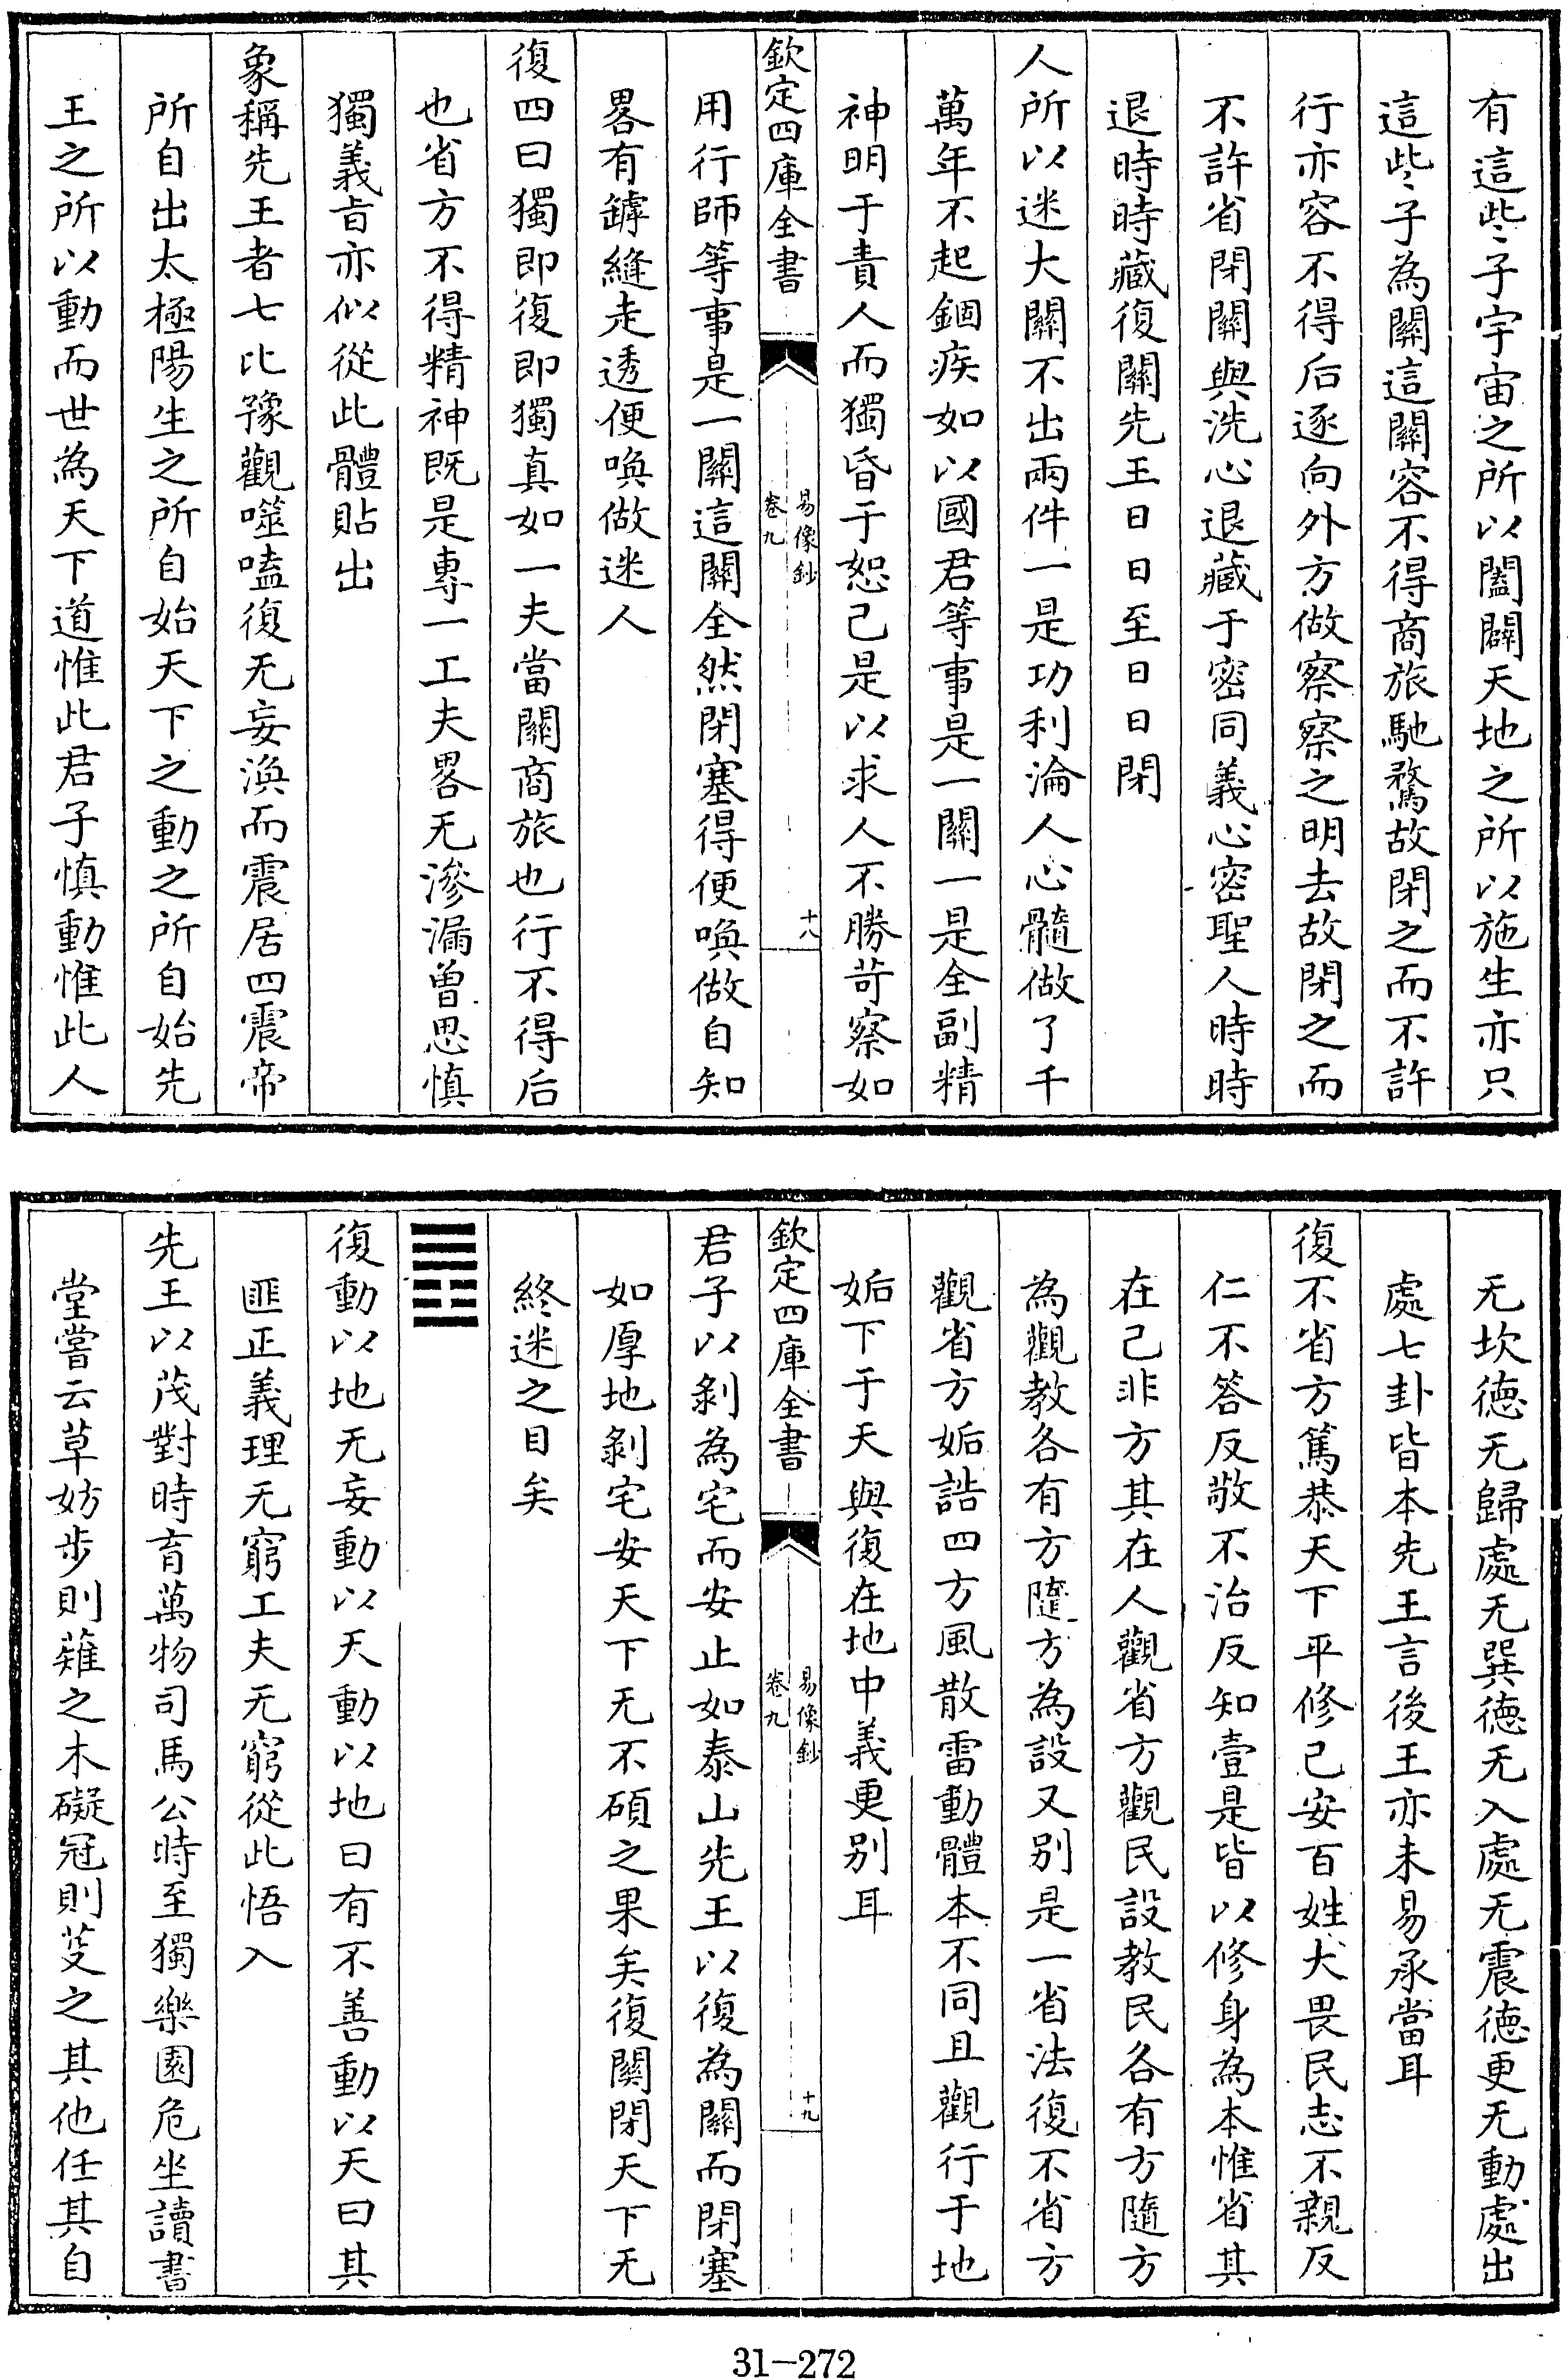 有這些子宇宙之所以闔闢天地之所以施生亦只
這些子為關這關容不得商旅馳騖故閉之而不許
行亦容不得后逐向外方做察察之明去故閉之而
不許省閉關與洗心退藏于密同義心密聖人時時
退時時藏復關先王日日至日日閉
人所以迷大關不出兩件一是功利淪人心髓做了千
萬年不起錮疾如以國君等事是一關一是全副精
神明于責人而獨昏于恕己是以求人不勝苛察如
欽定四庫全書
易像鈔
卷九
十八
用行師等事是一關這關全然閉塞得便喚做自知
畧有罅縫走透便喚做迷人
復四曰獨即復即獨真如一夫當關商旅也行不得后
也省方不得精神既是專一工夫畧无滲漏曾思慎
獨義㫖亦似從此體貼出
象稱先王者七比豫觀噬嗑復无妄渙而震居四震帝
所自出太極陽生之所自始天下之動之所自始先
王之所以動而世為天下道惟此君子慎動惟此人
无坎德无歸處无巽德无入處无震德更无動處出
處七卦皆本先王言後王亦未易承當耳
復不省方篤恭天下平修己安百姓大畏民志不親反
仁不答反敬不治反知壹是皆以修身為本惟省其
在己非方其在人觀省方觀民設教民各有方隨方
為觀教各有方隨方為設又别是一省法復不省方
觀省方姤誥四方風散雷動體本不同且觀行于地
姤下于天與復在地中義更别耳
欽定四庫全書
易像鈔
卷九
十九
君子以剝為宅而安止如泰山先王以復為關而閉塞
如厚地剝宅安天下无不碩之果矣復關閉天下无
終迷之目矣
䷘
復動以地无妄動以天動以地曰有不善動以天曰其
匪正義理无窮工夫无窮從此悟入
先王以茂對時育萬物司馬公時至獨樂園危坐讀書
堂嘗云草妨步則薙之木礙冠則芟之其他任其自
31-272